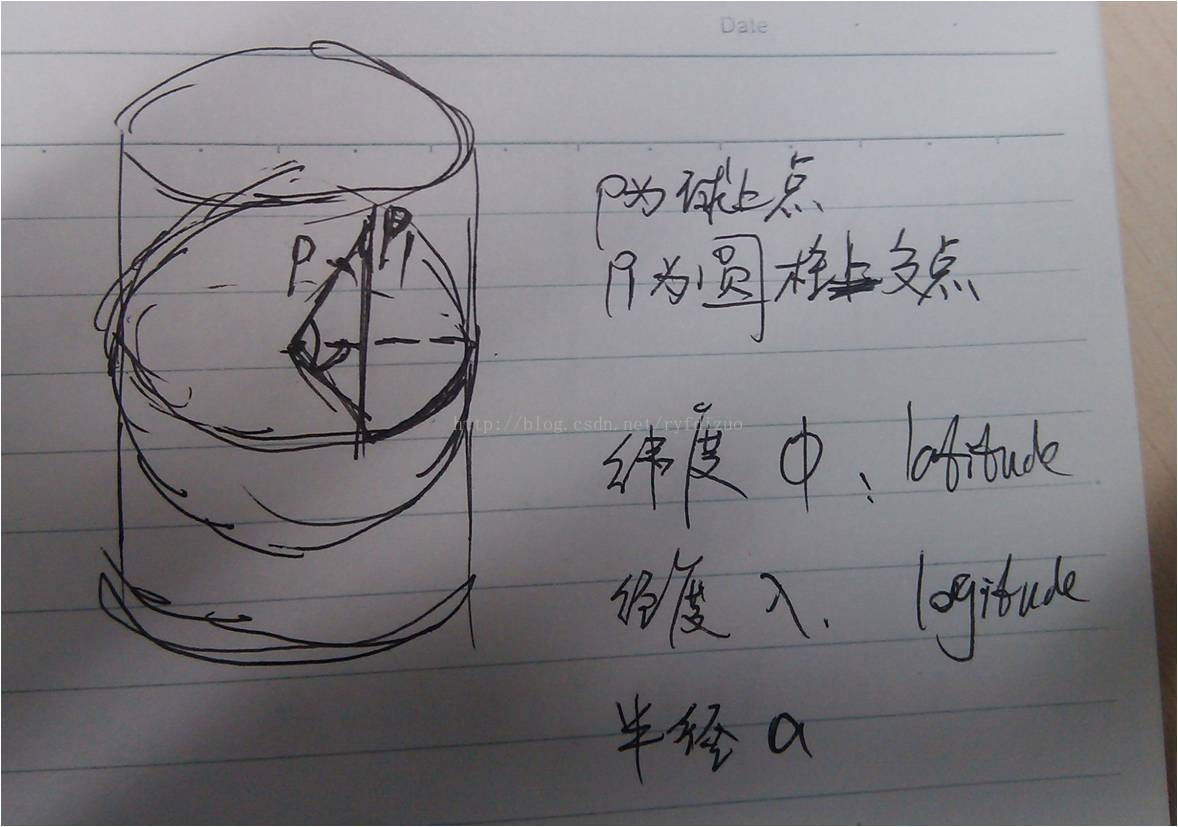 Date
P为球上点
P P1
P1为圆柱上交点
http://blog.csdn.net/ryfdizuo
纬度 φ、latitude
经度 λ. logitude
半经 a